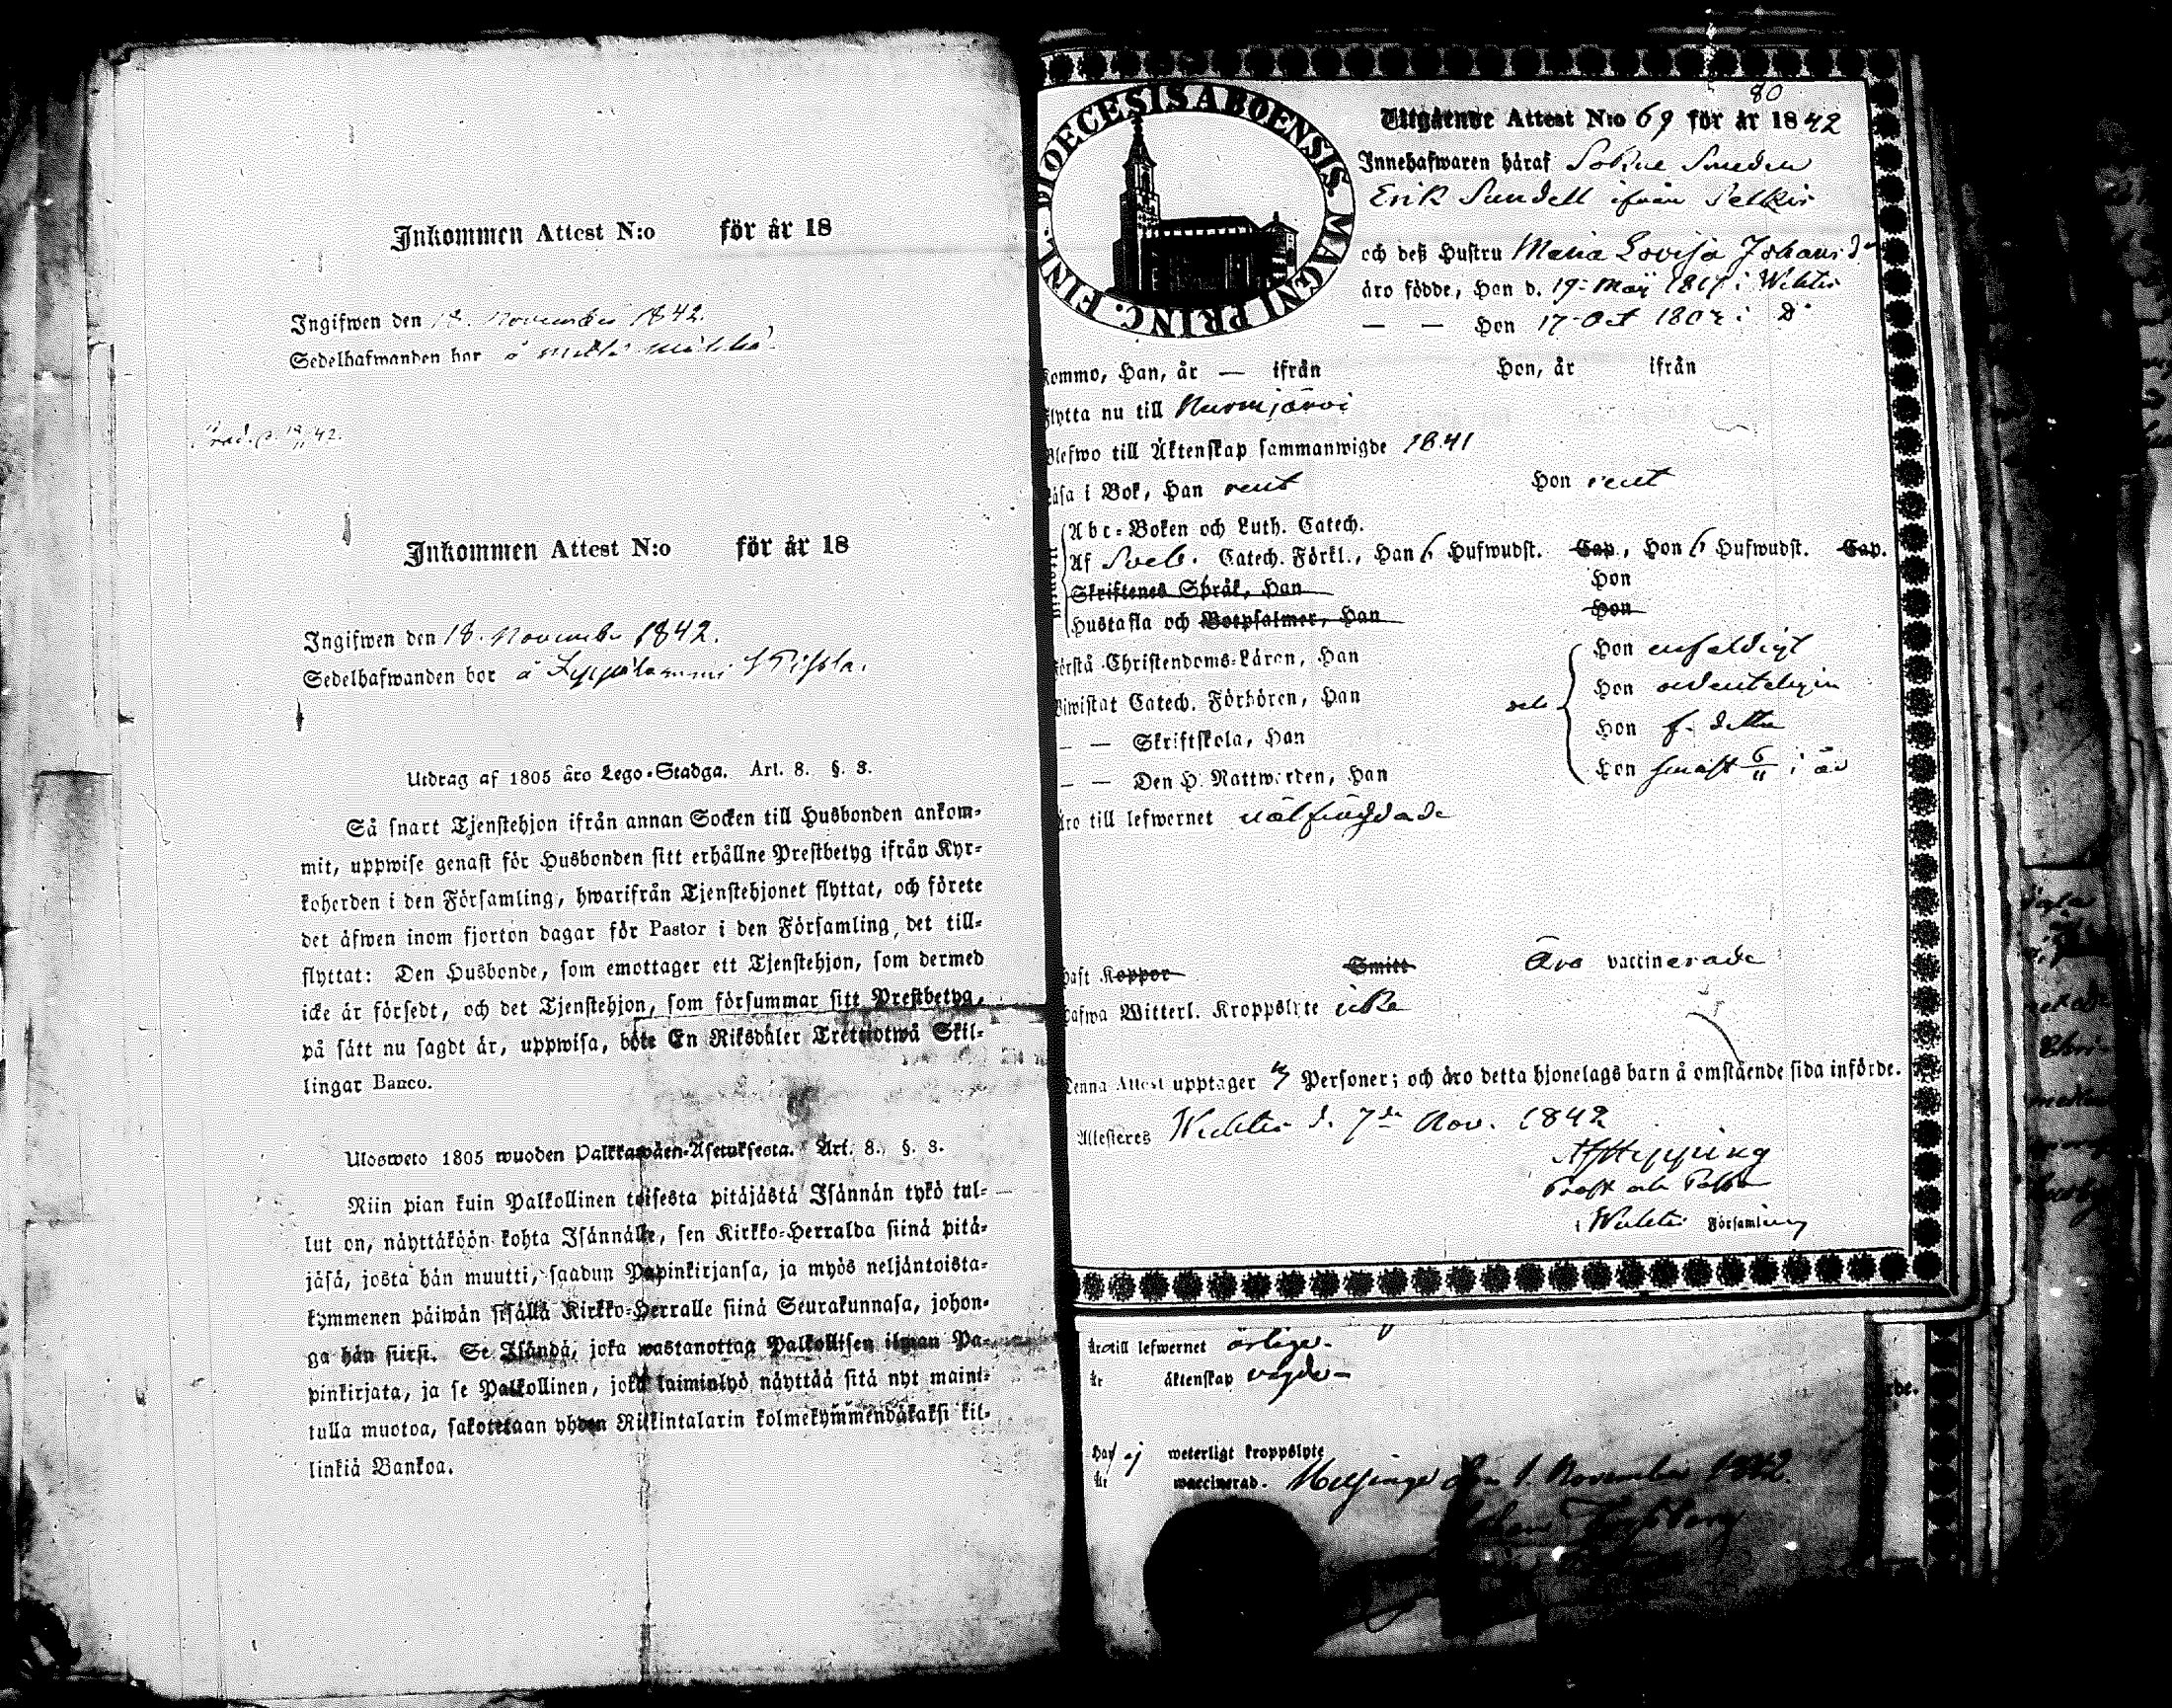 Inkommen Attest N:o för år 18
Ingifwen den 18. November 1842.
Sedelhafwanden bor å
Inkommen Attest N:o för år 18
Ingifwen den 18. November 1842.
Sedelhafwanden bor å
Utdrag af 1805 åro Lego-Stadga. Art. 8. §. 3.
Så snart Tjenstehjon ifrån annan Socken till Husbonden ankom-
mit, uppwise genast för Husbonden sitt erhållne Prestbetyg ifrån Kyr-
koherden i den Församling, hwarifrån Tjenstehjonet flyttat, och förete
det äfwen inom fjorton dagar för Pastor i den Församling, det till-
flyttat: Den Husbonde, som emottager ett Tjenstehjon, som dermed
icke är försedt, och det Tjenstehjon, som försummar sitt Prestbetyg,
på sätt nu sagdt är, uppwisa, böte En Riksdaler Trettiotwå Skil-
lingar Banco.
Ulosweto 1805 wuoden Palkkawäen-Asetuksesta. Art. 8. §. 3.
Niin pian kuin Palkollinen toisesta pitäjästä Isännän tykö tul-
lut on, näyttäköön kohta Isännälle, sen Kirkko-Herralda siinä pitä-
jäsä, josta hän muutti, saadun Papinkirjansa, ja myös neljäntoista-
kymmenen päiwän sisällä Kirkko-Herralle siinä Seurakunnasa, johon-
ga hän siirsi. Se Isändä, joka wastanottaa Palkollisen ilman Pa-
pinkirjata, ja se Palkollinen, joka laiminlyö näyttää sitä nyt maini-
tulla muotoa, sakotetaan yhden Riikintalarin kolmekymmendäkaksi kil-
linkiä Bankoa.
80
DIOECESIS ABOENSIS. MAGNI PRINC. FINL.
Utgående Attest N:o 69 för år 1842
Innehafwaren häraf Sokne Smeden
Erik Sundell ifrån
och deß Hustru Maria Lovisa Johansdr
äro födde, Han d. 19 Maj i Wichtis
— — Hon 17 Oct i do
Kommo, Han, år — ifrån Hon, år ifrån
Flytta nu till Nurmijärvi
Blefwo till Äktenskap sammanwigde 1841
Läsa i Bok, Han rent Hon rent
Abc-Boken och Luth. Catech.
Af Sveb. Catech. Förkl., Han 6 Hufwudst. Cap., Hon 6 Hufwudst. Cap.
Skriftenes Språk, Han Hon
Hustafla och Botpsalmer, Han Hon
Förstå Christendoms-Läran, Han Hon enfaldigt
Biwistat Catech. Förhören, Han Hon ordenteligen
— — Skriftskola, Han Hon f. detta
— — Den H. Nattwarden, Han Hon senast 6/11 i år
Äro till lefwernet välfrägdade
Haft Koppor Smitt Äro vaccinerade
Hafwa Witterl. Kroppslyte icke
Denna Attest upptager Personer; och äro detta hjonelags barn å omstående sida införde.
Attesteres Wichtis d. 7de Nov. 1842
AFHipping
Prost och Pastor
i Wichtis Församling
Äro till lefwernet ärlige
Är äktenskap
Har ej weterligt kroppslyte
Är waccinerad. Helsinge den 1. November 1842.